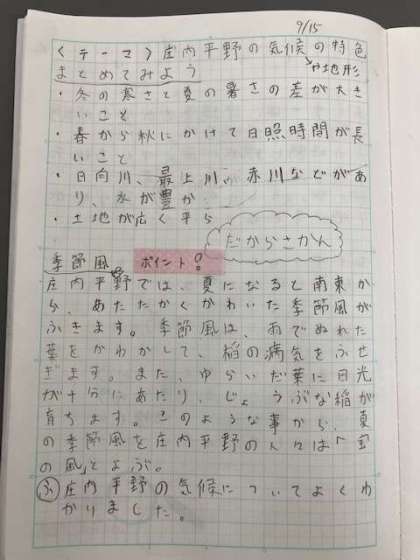 9/15
〈テーマ〉庄内平野の気候の特色
や地形
まとめてみよう
・冬の寒さと夏の暑さの差が大き
いこと
・春から秋にかけて日照時間が長
いこと
・日向川、最上川、赤川などがあ
り、水が豊か
・土地が広く平ら
だからさかん
季節風 ポイント!
庄内平野では、夏になると南東か
ら、あたたかくかわいた季節風が
ふきます。季節風は、あでぬれた
葉をかわかして、稲の病気をふせ
ぎます。また、ゆらいだ葉に日光
が十分にあたり、じょうぶな稲が
育ちます。このような事から、夏
の季節風を庄内平野の人々は「宝
の風」とよぶ。
ふ 庄内平野の気候についてよくわ
かりました。